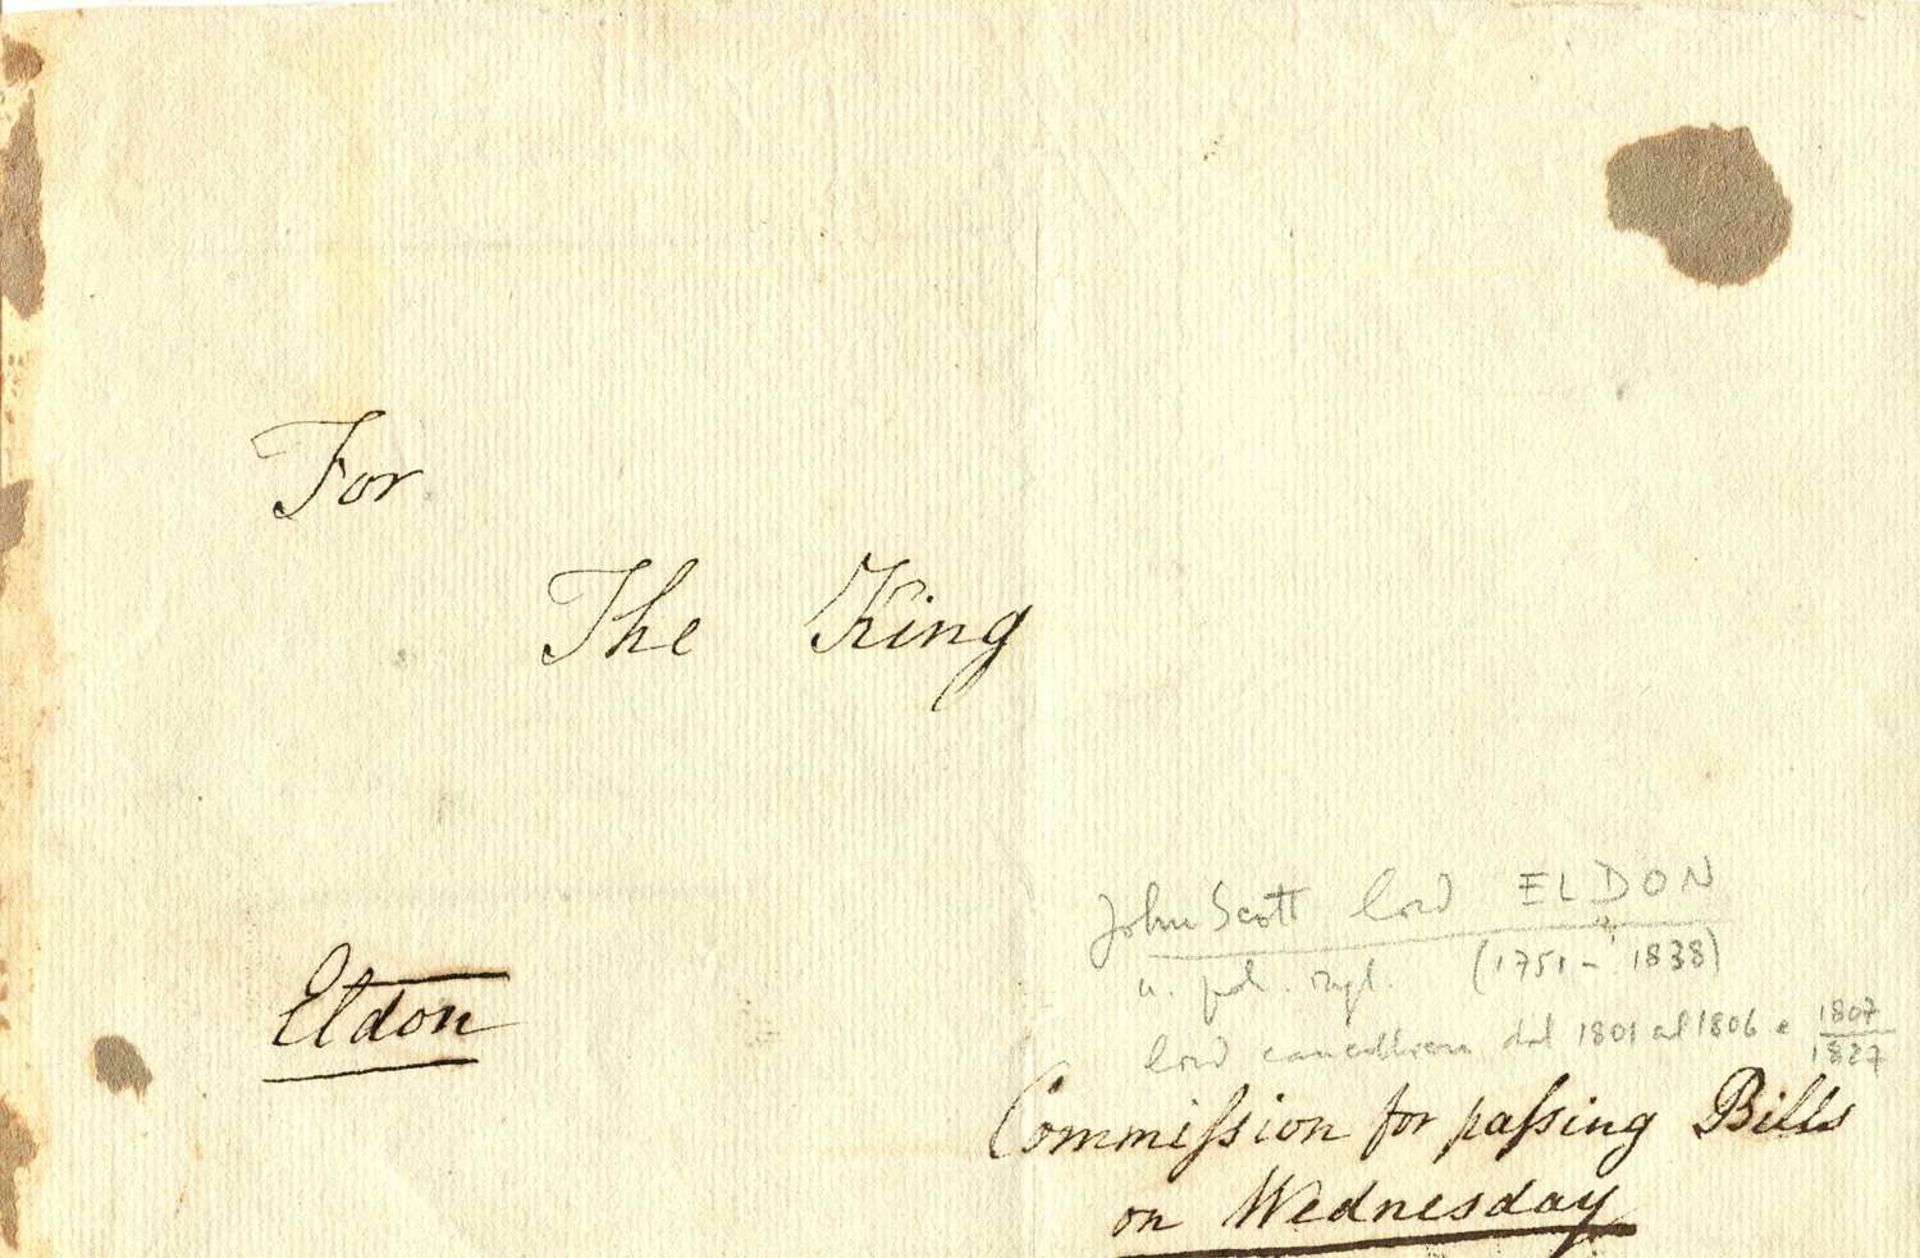 For
The King
John Scott lord ELDON
u. pol. ingl. (1751 - 1838)
Eldon
lord cancelliere dal 1801 al 1806 e 1807
1827
Commiſsion for paſsing Bills
on Wednesday